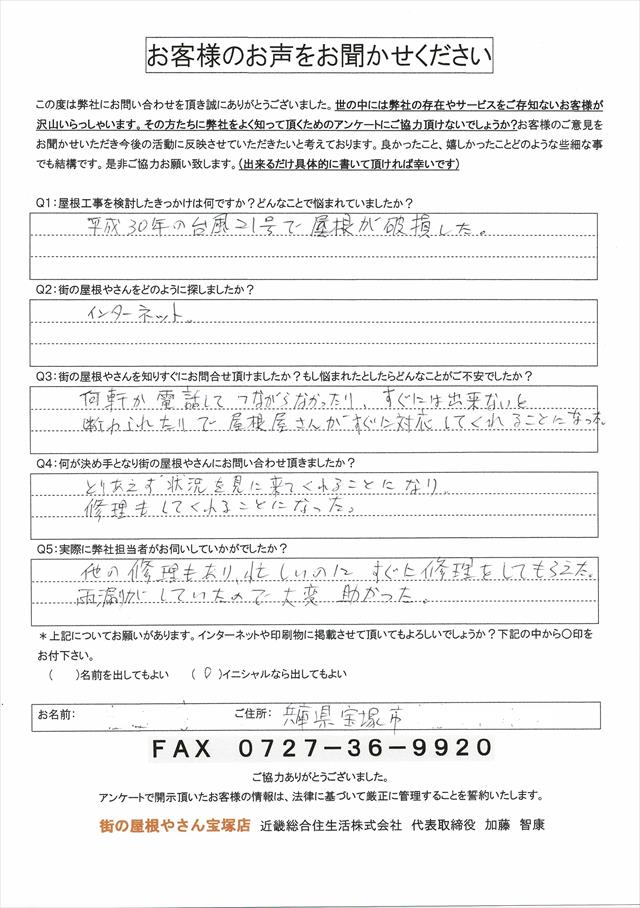 お客様のお声をお聞かせください
この度は弊社にお問い合わせを頂き誠にありがとうございました。世の中には弊社の存在やサービスをご存知ないお客様が
沢山いらっしゃいます。その方たちに弊社をよく知って頂くためのアンケートにご協力頂けないでしょうか?お客様のご意見を
お聞かせいただき今後の活動に反映させていただきたいと考えております。良かったこと、嬉しかったことどのような些細な事
でも結構です。是非ご協力お願い致します。(出来るだけ具体的に書いて頂ければ幸いです)
Q1:屋根工事を検討したきっかけは何ですか?どんなことで悩まれていましたか?
平成30年の台風21号で屋根が破損した。
Q2:街の屋根やさんをどのように探しましたか?
インターネット。
Q3:街の屋根やさんを知りすぐにお問合せ頂けましたか?もし悩まれたとしたらどんなことがご不安でしたか?
何軒か電話してつながらなかったり、すぐには出来ないと
断わられたりで屋根屋さんがすぐに対応してくれることになった。
Q4:何が決め手となり街の屋根やさんにお問い合わせ頂きましたか?
とりあえず状況を見に来てくれることになり
修理もしてくれることになった。
Q5:実際に弊社担当者がお伺いしていかがでしたか?
他の修理もあり、忙しいのにすぐに修理をしてもらえた。
雨漏りがしていたので大変助かった。
*上記についてお願いがあります。インターネットや印刷物に掲載させて頂いてもよろしいでしょうか?下記の中から〇印を
お付下さい。
( )名前を出してもよい (〇)イニシャルなら出してもよい
お名前: ご住所: 兵庫県宝塚市
FAX 0727-36-9920
ご協力ありがとうございました。
アンケートで開示頂いたお客様の情報は、法律に基づいて厳正に管理することを誓約いたします。
街の屋根やさん宝塚店 近畿総合住生活株式会社 代表取締役 加藤 智康